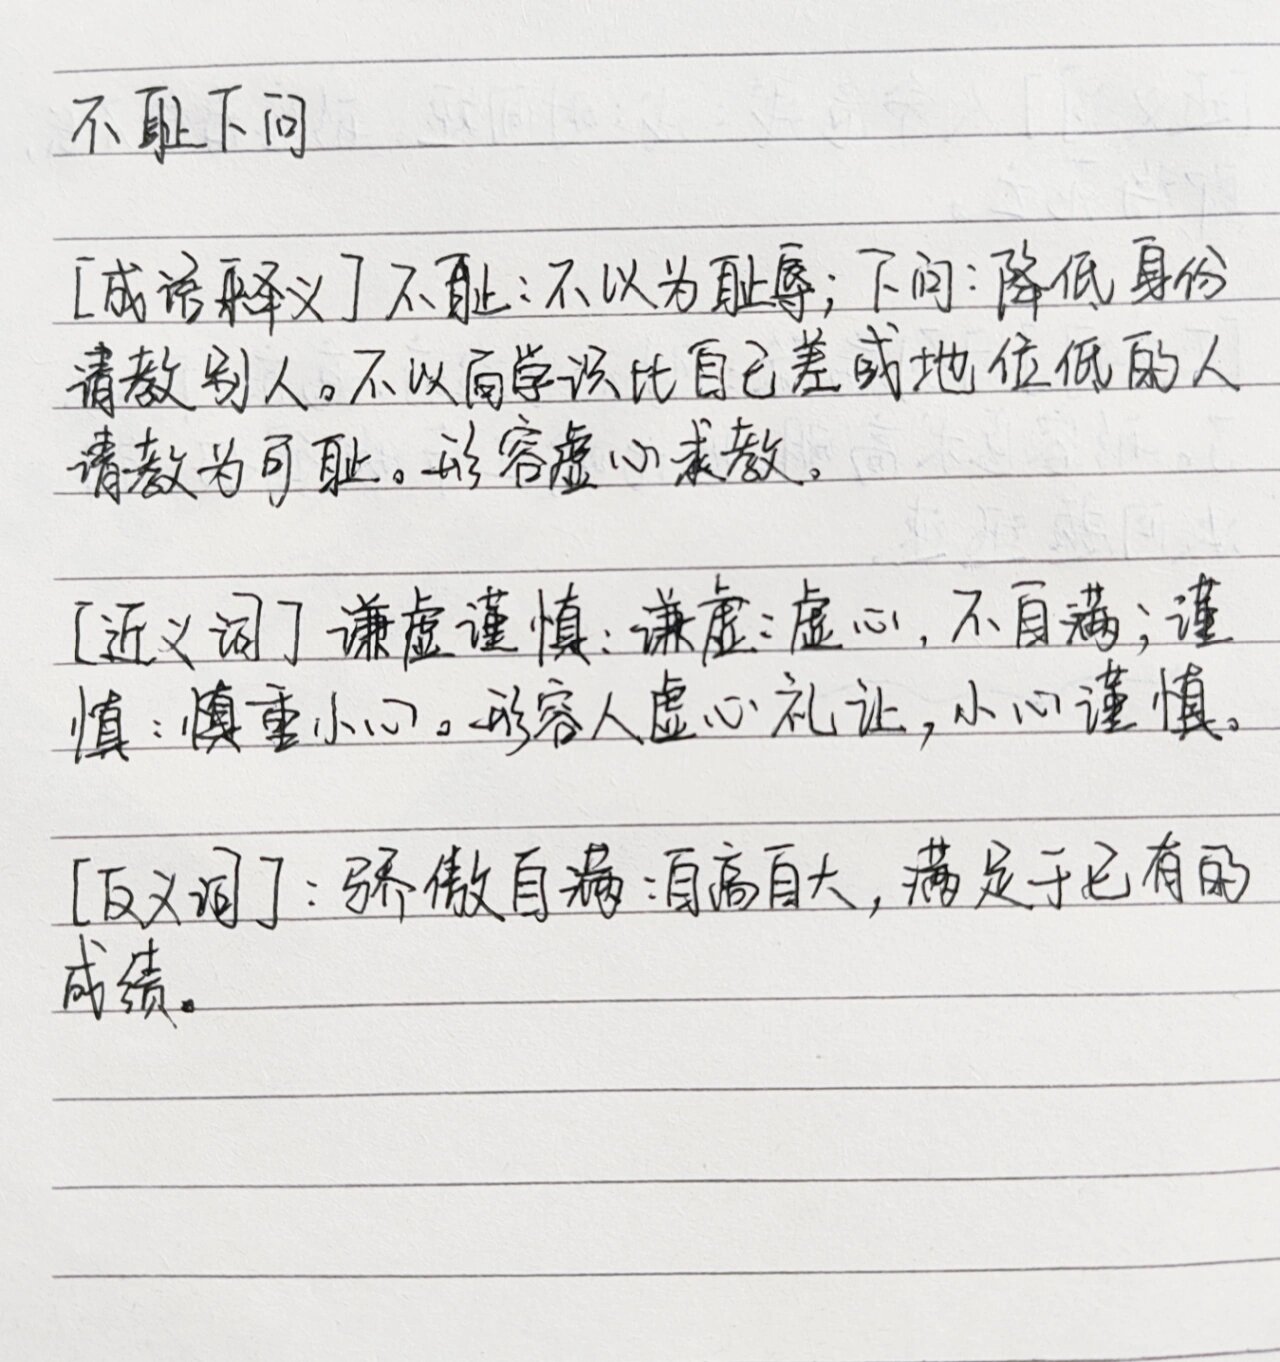 不耻下问
[成语释义]不耻:不以为耻辱;下问:降低身份
请教别人。不以向学识比自己差或地位低的人
请教为可耻。形容虚心求教。
[近义词]谦虚谨慎:谦虚:虚心,不自满;谨
慎:慎重小心。形容人虚心礼让,小心谨慎。
[反义词]:骄傲自满:自高自大,满足于已有的
成绩。